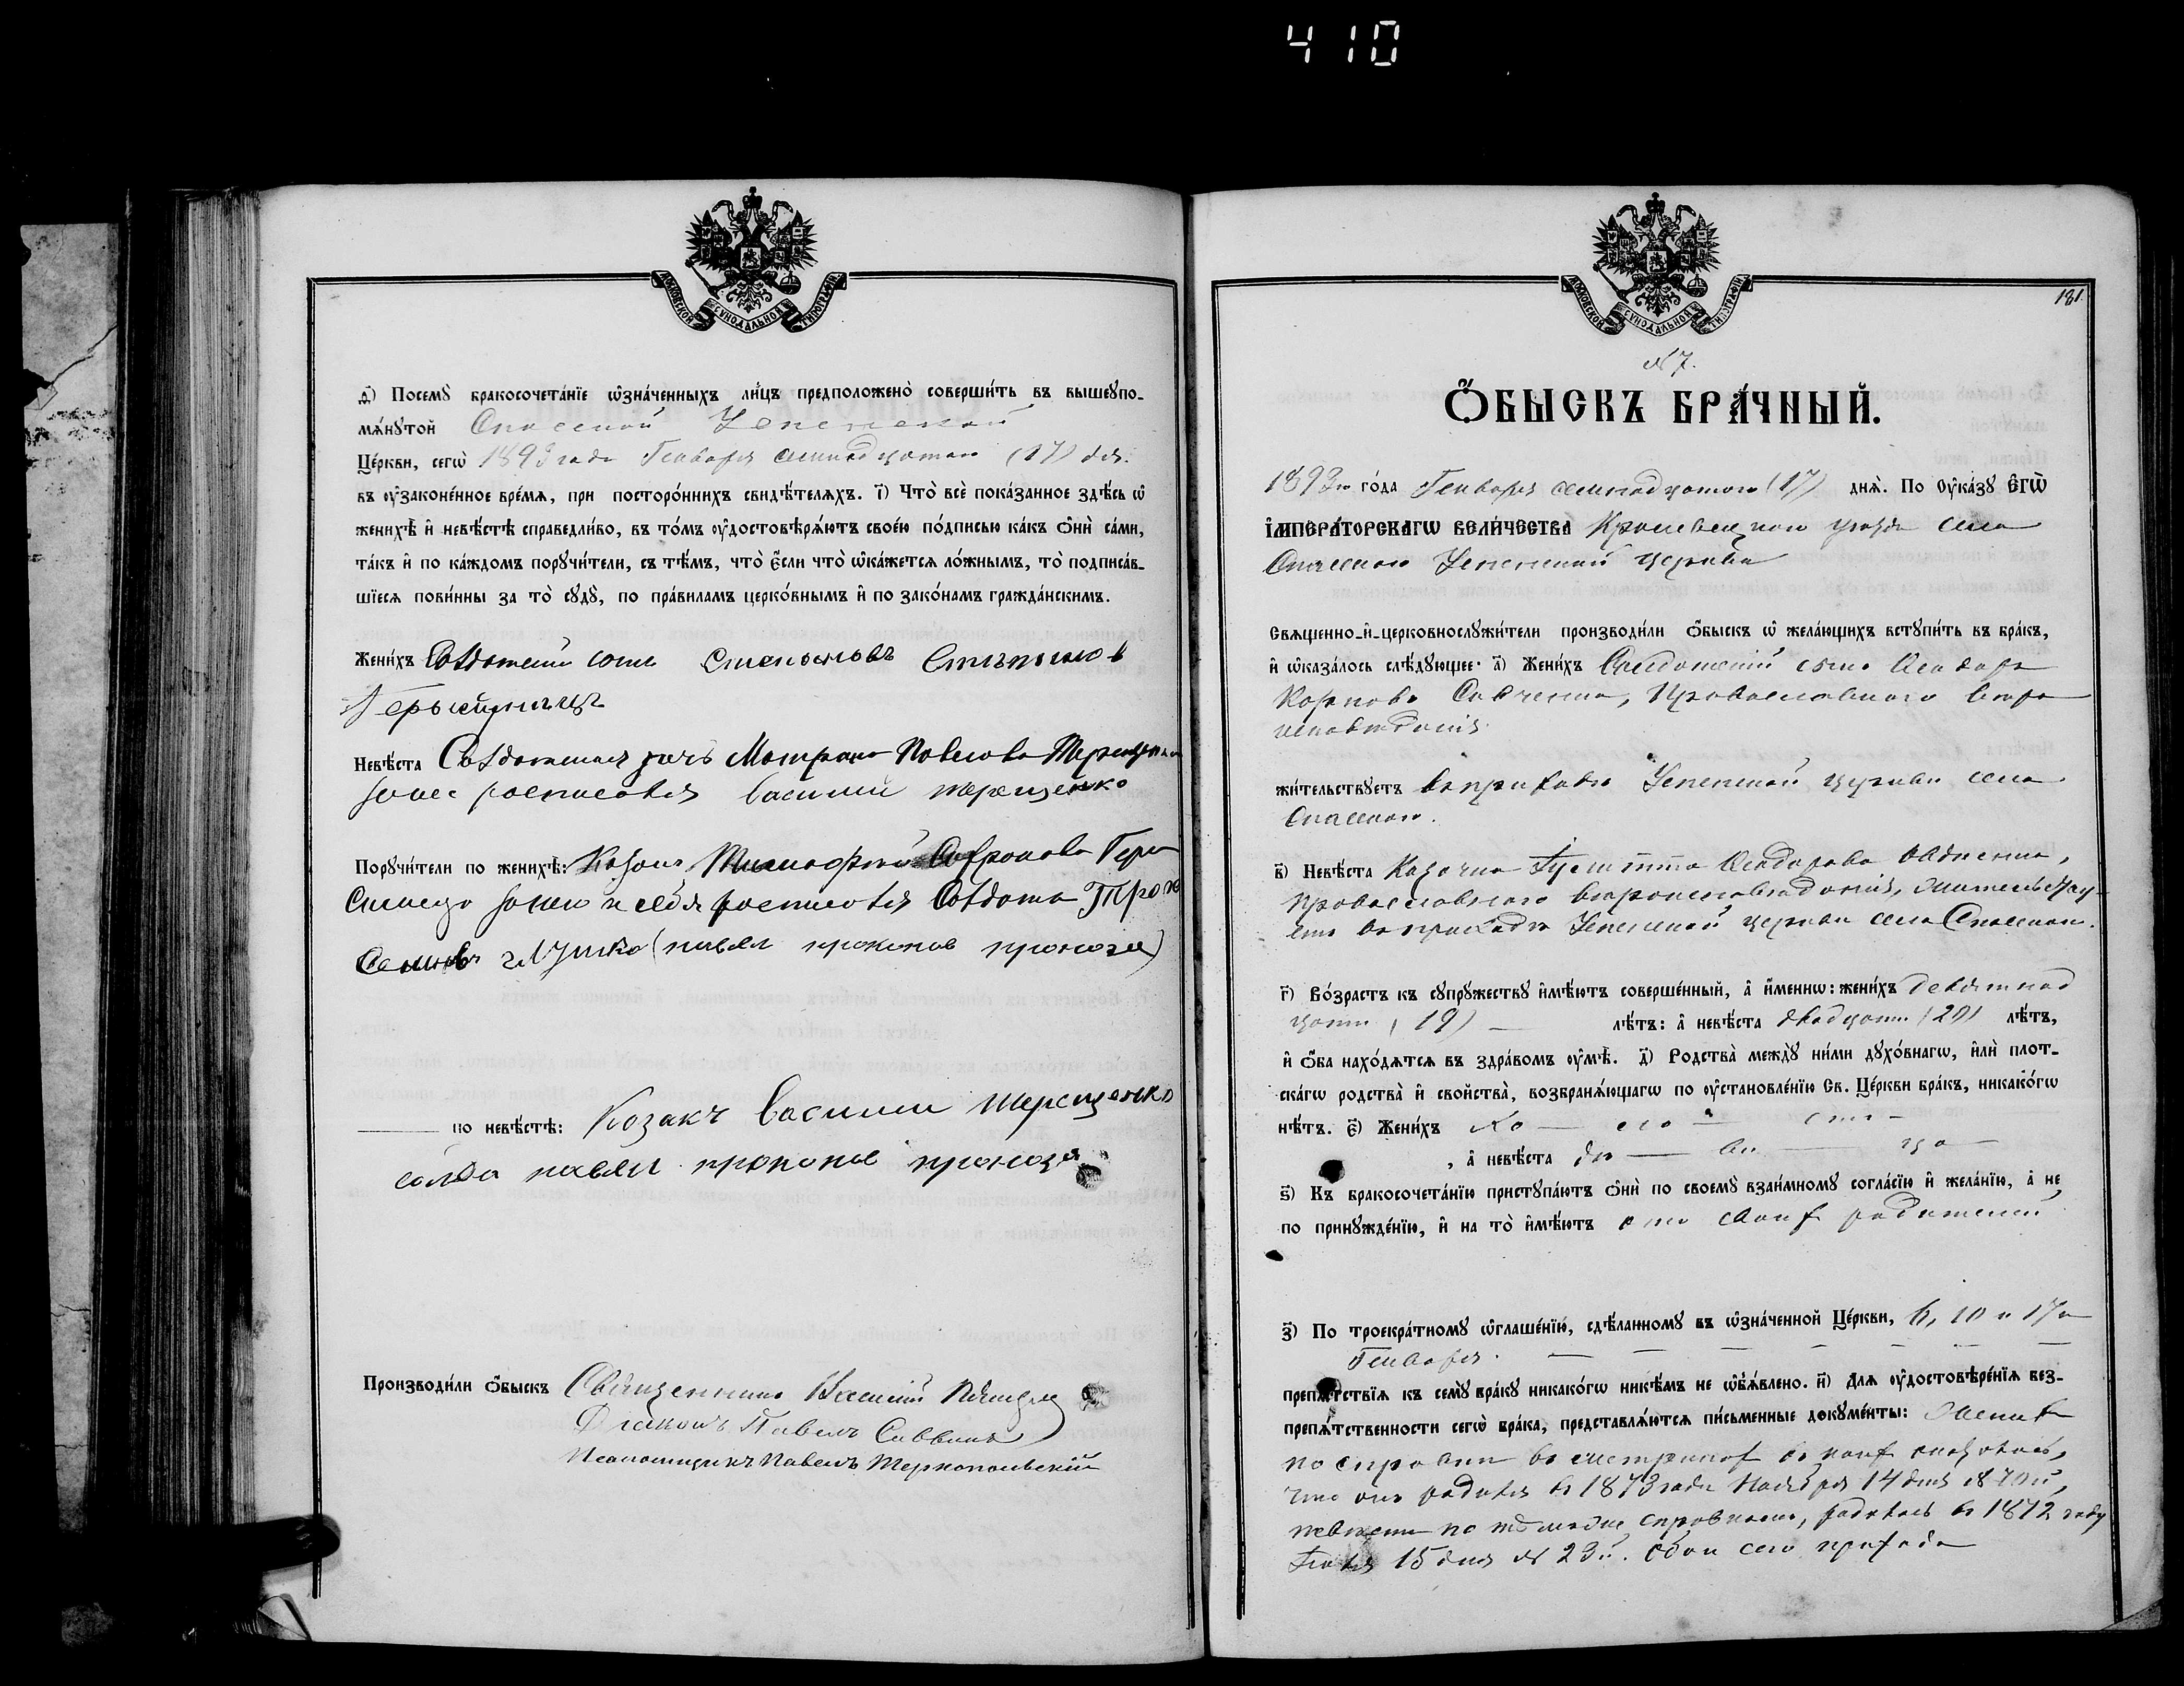 410
МОСКОВСКОЙ СУНОДАЛЬНОЙ ТИПОГРАФІИ
д҃) Посемꙋ̀ бракосочета́нїе ѡ҆зна́ченныхъ ли́цъ предположено̀ соверши́ть въ вышеꙋпо-
мѧ́нꙋтой Спасской Успенской
Це́ркви, сегѡ̀ 1893 года Генваря семнадцатаго (17) дня.
въ ᲂу҆законе́нное вре́мѧ, при посторо́ннихъ свидѣ́телѧхъ. і҃) Что̀ всѐ пока́занное здѣ́сь ѡ҆
женихѣ̀ и҆ невѣ́стѣ справедли́во, въ то́мъ ᲂу҆достовѣрѧ́ютъ свое́ю по́дписью ка́къ ѻ҆нѝ са́ми,
та́къ и҆ по ка́ждомъ порꙋчи́тели, съ тѣ́мъ, что̀ є҆́сли что̀ ѡ҆ка́жетсѧ ло́жнымъ, то̀ подписа́в-
шїесѧ пови́нны за то̀ сꙋдꙋ̀, по пра́виламъ церко́внымъ и҆ по зако́намъ гражда́нскимъ.
Жени́хъ Солдатскій сынъ
Невѣ́ста Солдатская дочь Матрона Павлова Терещенкова
росписался Василий терещенко
Порꙋчи́тели по женихѣ̀: Козакъ Тимофей Софронова
и себя росписался Солдатъ
(павел прокопов проноза)
по невѣ́стѣ: Козакъ Василии терещенко
солда павел прокопов проноза
Производи́ли ѻ҆́быскъ Священникъ Василій
Діаконъ Павелъ Саввинъ
Псаломщикъ Павелъ Тернопольскій
181
МОСКОВСКОЙ СУНОДАЛЬНОЙ ТИПОГРАФІИ
№ 7.
Ѻ҆́БЫСКЪ БРА́ЧНЫЙ.
1893го го́да Генваря семнадцатаго (17) днѧ̀. По ᲂу҆ка́зꙋ Є҆ГѠ̀
І҆МПЕРА́ТОРСКАГѠ ВЕЛИ́ЧЕСТВА Кролевецкаго уезда села
Спасскаго Успенской церкви
Свѧщенно-и҆-церковнослꙋжи́тели производи́ли ѻ҆́быскъ ѡ҆ жела́ющихъ встꙋпи́ть въ бра́къ,
и҆ ѡ҆каза́лось слѣ́дꙋющее: а҃) Жени́хъ Солдатскій сынъ
Карповъ Савченко, Православнаго веро
исповеданія.
жи́тельствꙋетъ въ приходе Успенской церкви села
Спасскаго.
в҃) Невѣ́ста Казачка
православнаго вероисповеданія, жительству-
етъ въ приходе Успенской церкви села Спасскаго.
г҃) Во́зрастъ къ сꙋпрꙋ́жествꙋ и҆мѣ́ютъ соверше́нный, а҆ и҆́меннѡ: жени́хъ девятнад
цать (19) — лѣ́тъ: а҆ невѣ́ста двадцать (20) лѣ́тъ,
и҆ ѻ҆́ба нахо́дѧтсѧ въ здра́вомъ ᲂу҆мѣ̀. д҃) Родства̀ междꙋ̀ ни́ми дꙋхо́внагѡ, и҆лѝ плот-
ска́гѡ родства̀ и҆ свойства̀, возбранѧ́ющагѡ по ᲂу҆становле́нїю Св. Це́ркви бра́къ, никако́гѡ
нѣ́тъ. є҃) Жени́хъ хо — ло — стъ —
, а҆ невѣ́ста де — ви — ца —
ѕ҃) Къ бракосочета́нїю пристꙋпа́ютъ ѻ҆нѝ по своемꙋ̀ взаи́мномꙋ согла́сїю и҆ жела́нїю, а҆ не
по принꙋжде́нїю, и҆ на то̀ и҆мѣ́ютъ отъ своихъ родителей
з҃) По троекра́тномꙋ ѡ҆глаше́нїю, сдѣ́ланномꙋ въ ѡ҆зна́ченной Це́ркви, 6, 10 и 17го
Генваря. — — — — — — —
препѧ́тствїѧ къ семꙋ̀ бра́кꙋ никако́гѡ никѣ́мъ не ѡ҆б̾ѧ́влено. и҃) Для ᲂу҆достовѣре́нїѧ без-
препѧ́тственности сегѡ̀ бра́ка, представлѧ́ютсѧ пи́сьменные докꙋме́нты: Женихъ
по справки въ метрикахъ въ коихъ оказалось,
что онъ родился въ 1873 году Ноября 14 дня № 70й,
невеста по таковой справке, родилась въ 1872 году
15 дня № 23й. Обои сего прихода